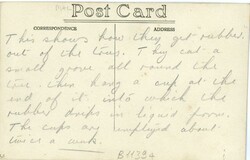 Post Card
CORRESPONDENCE ADDRESS
This shows how they get rubber
out of the trees. They cut a
small grove all round the
tree then hang a cup at the
end of it into which the
rubber drops in liquid form.
The cups are emptied about
twice a week.
B11334